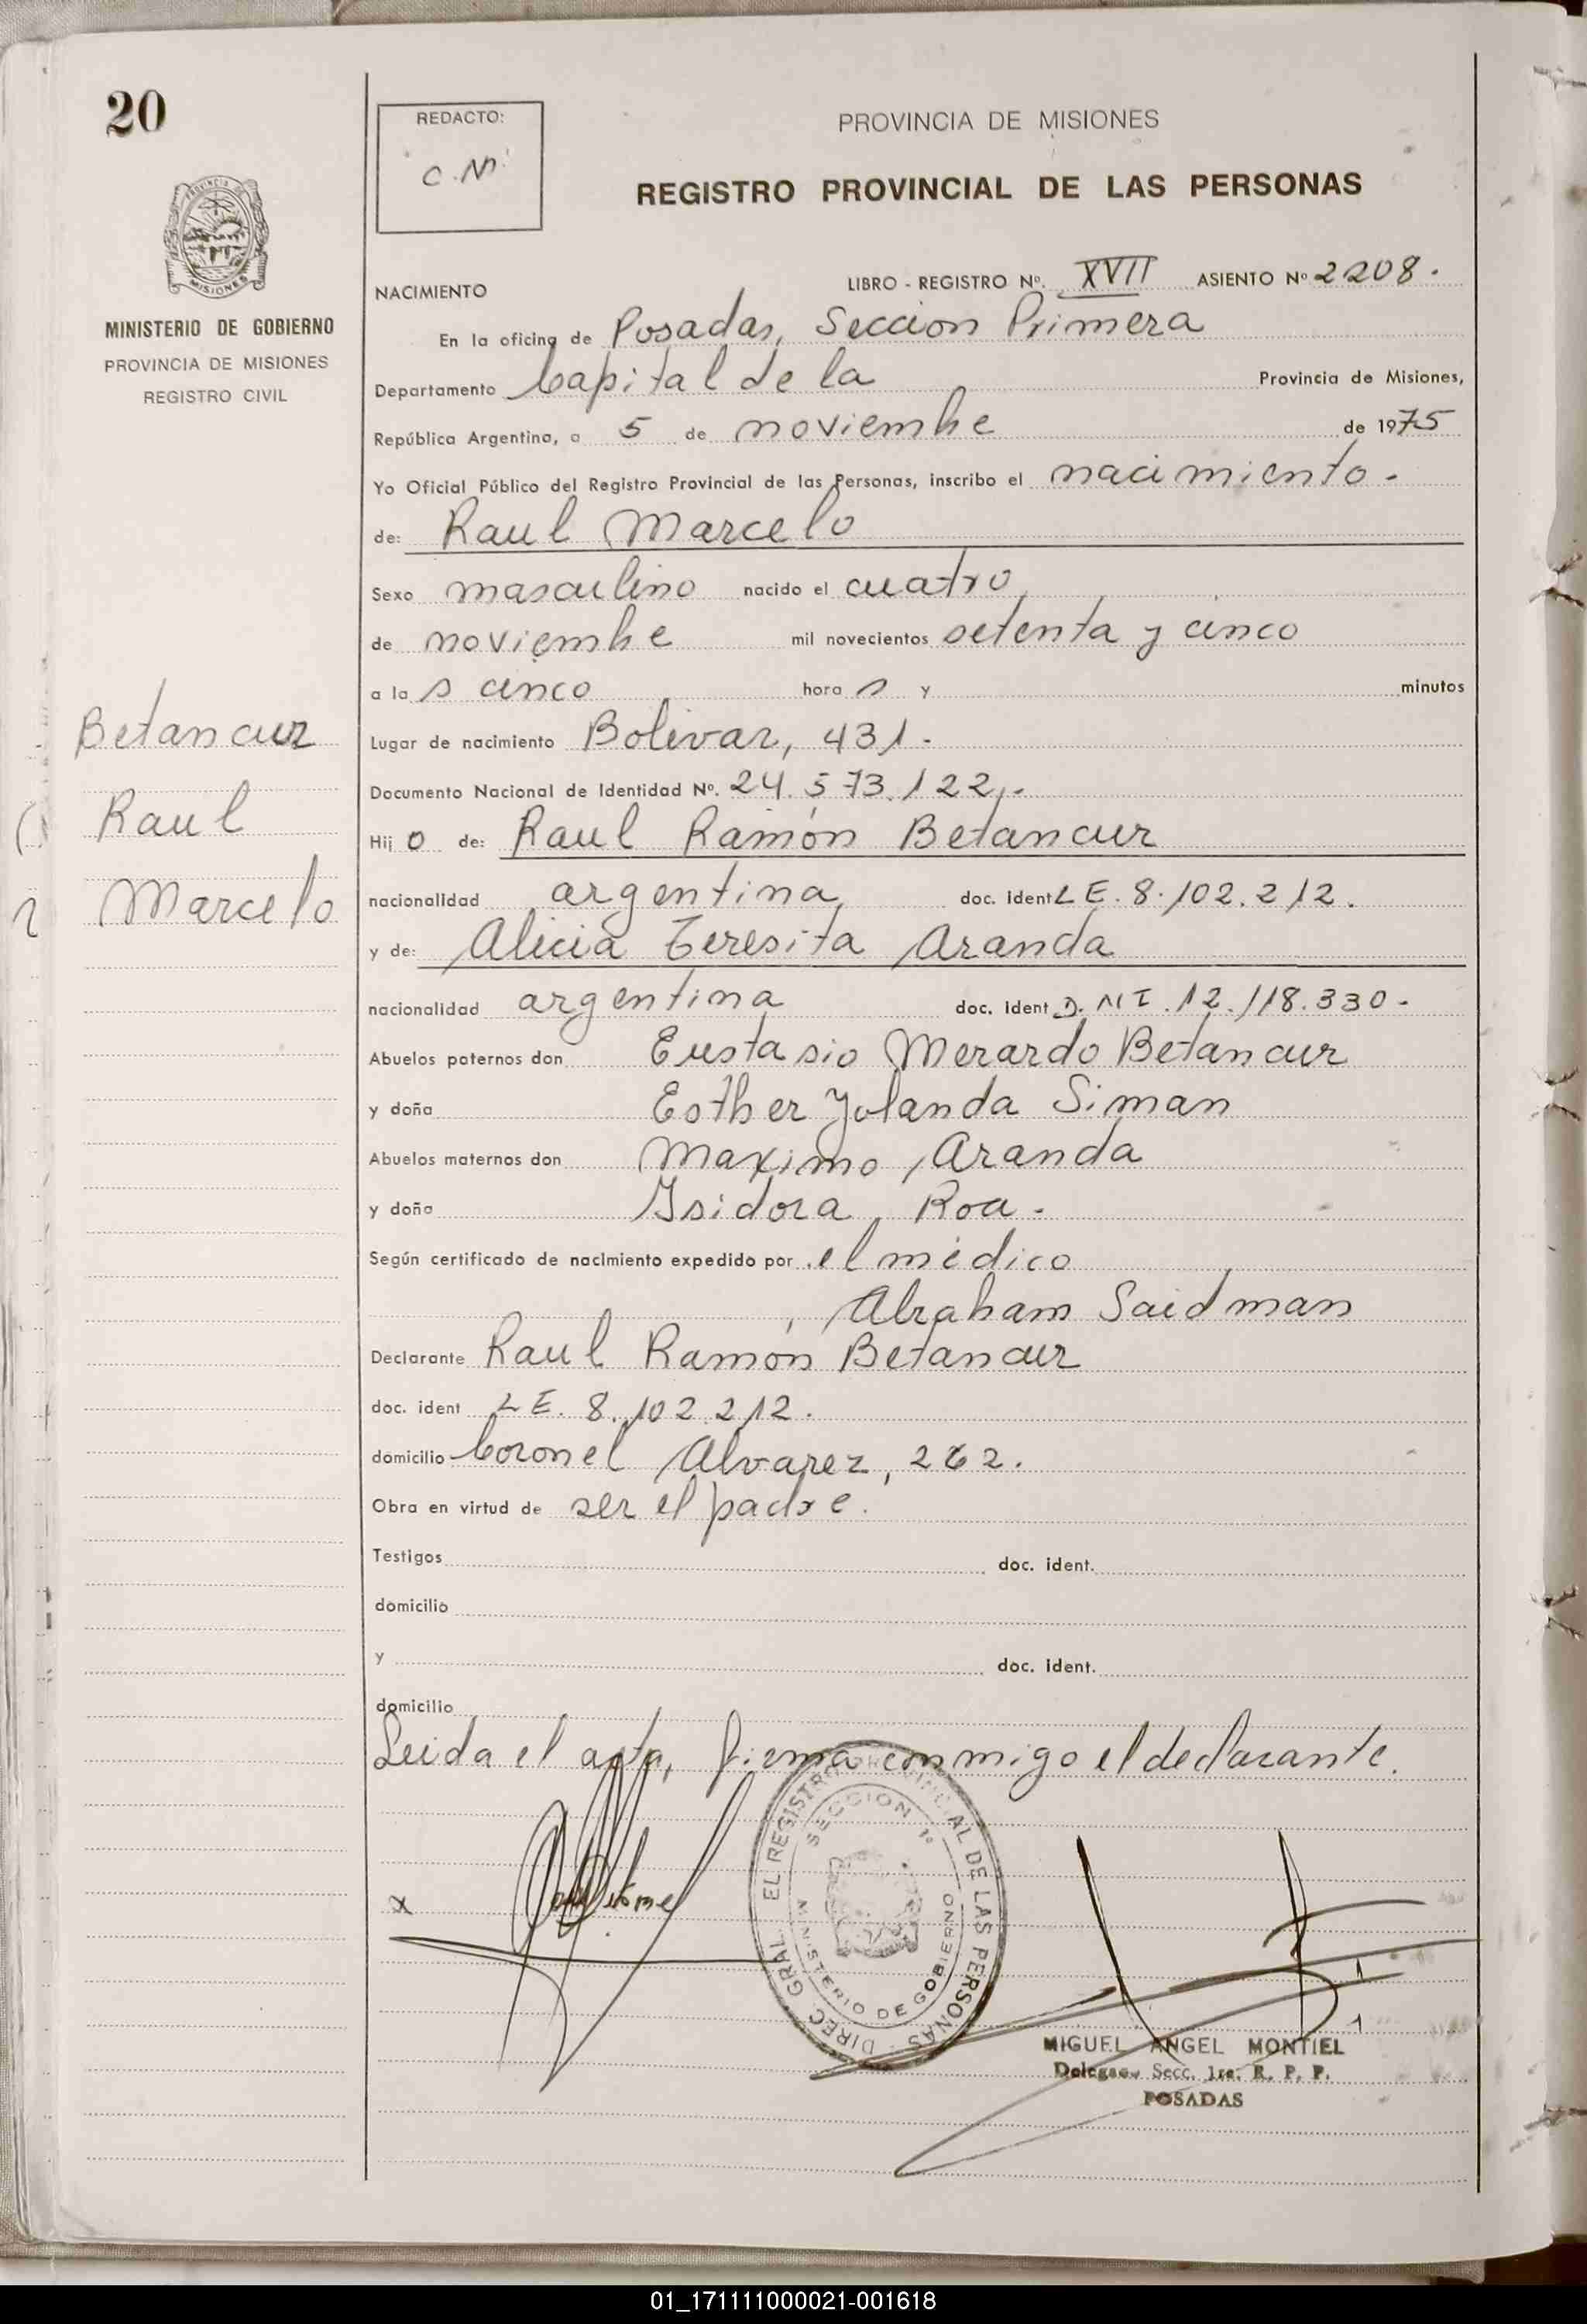 20
REDACTO:
C.M.
PROVINCIA DE MISIONES
REGISTRO PROVINCIAL DE LAS PERSONAS
PROVINCIA DE
MISIONES
MINISTERIO DE GOBIERNO
PROVINCIA DE MISIONES
REGISTRO CIVIL
NACIMIENTO LIBRO - REGISTRO Nº. XVII ASIENTO Nº 2208.
En la oficina de Posadas, Seccion Primera
Departamento Capital de la Provincia de Misiones,
República Argentina, a 5 de noviembre de 1975
Yo Oficial Público del Registro Provincial de las Personas, inscribo el nacimiento.
de: Raul Marcelo
Sexo masculino nacido el cuatro
de noviembre mil novecientos setenta y cinco
a la s cinco hora s y minutos
Betancur
Raul
Marcelo
Lugar de nacimiento Bolivar, 431.
Documento Nacional de Identidad Nº. 24.573.122.-
Hij o de: Raul Ramón Betancur
nacionalidad argentina doc. ident LE. 8.102.212.
y de: Alicia Teresita Aranda
nacionalidad argentina doc. ident D.NI.12.118.330-
Abuelos paternos don Eustasio Merardo Betancur
y doña Esther Yolanda Siman
Abuelos maternos don Maximo Aranda
y doña Isidora Roa.
Según certificado de nacimiento expedido por el médico
Abraham Saidman
Declarante Raul Ramón Betancur
doc. ident LE. 8.102.212.
domicilio Coronel Alvarez, 262.
Obra en virtud de ser el padre.
Testigos doc. ident.
domicilio
y doc. ident.
domicilio
Leida el acta, firma conmigo el declarante.
x
DIREC. GRAL. EL REGISTRO PROVINCIAL DE LAS PERSONAS
SECCION 1ª
MINISTERIO DE GOBIERNO
MIGUEL ANGEL MONTIEL
Delegado Secc. 1ra. R. P. P.
POSADAS
01_171111000021-001618